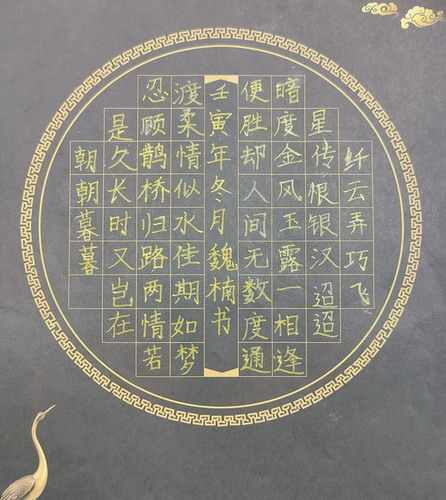 纤云弄巧飞
星传恨银汉迢迢
暗度金风玉露一相逢
便胜却人间无数度通
壬寅年冬月魏楠书
渡柔情似水佳期如梦
忍顾鹊桥归路两情若
是久长时又岂在
朝朝暮暮